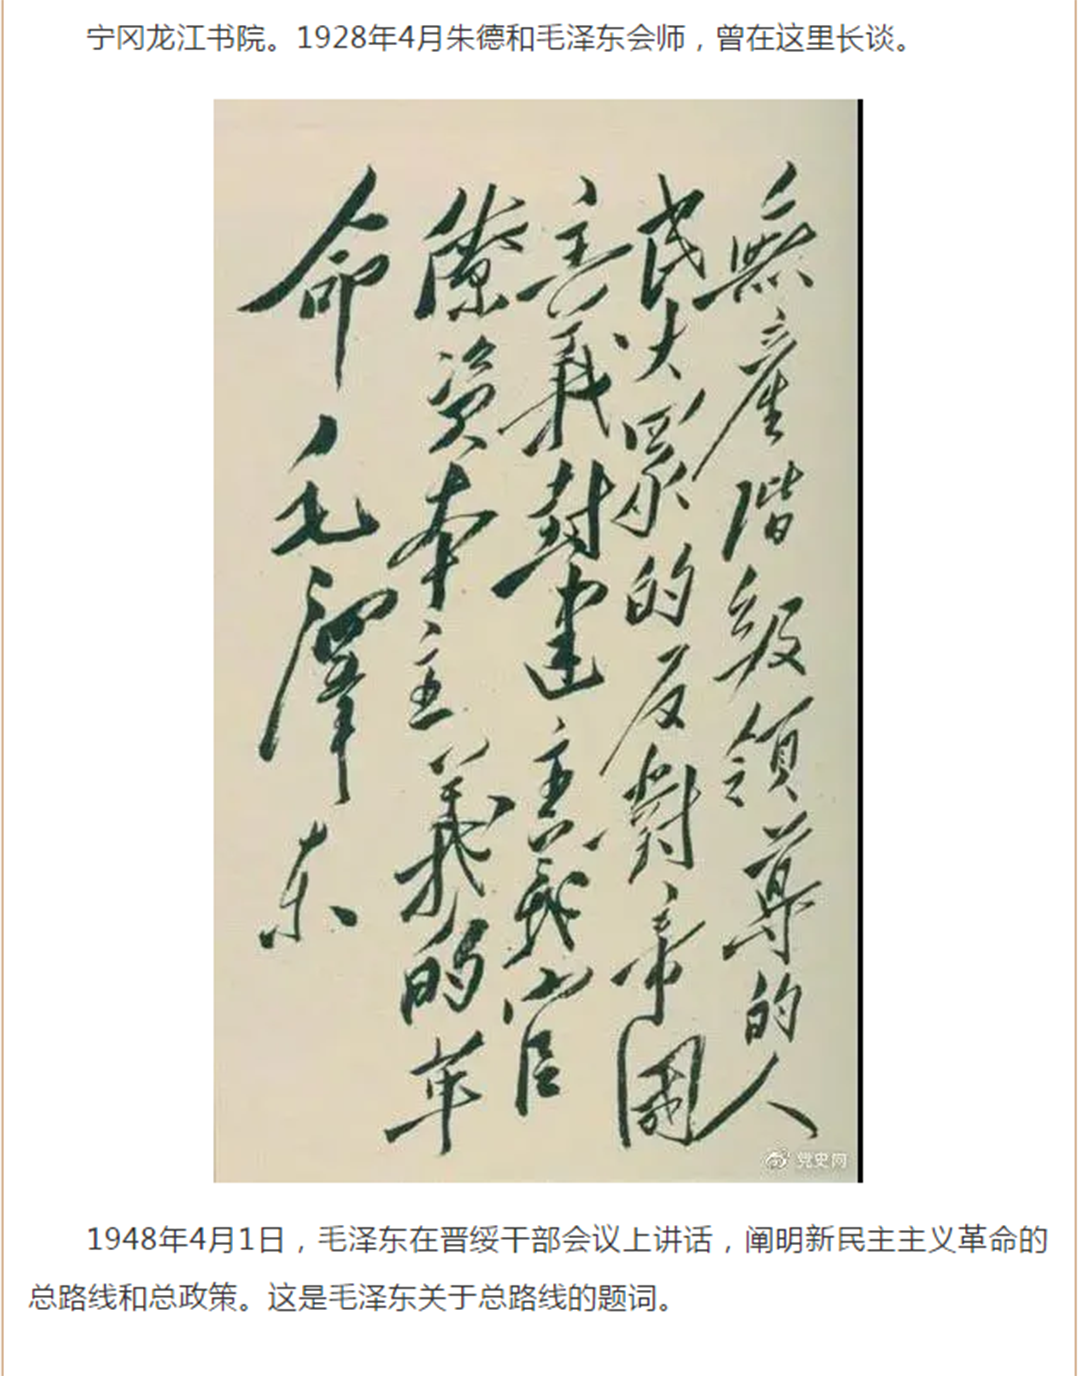 宁冈龙江书院。1928年4月朱德和毛泽东会师，曾在这里长谈。
無產階級領导的人
民大眾的反對帝國
主義封建主義官
僚資本主義的革
命毛澤东
党史网
1948年4月1日，毛泽东在晋绥干部会议上讲话，阐明新民主主义革命的
总路线和总政策。这是毛泽东关于总路线的题词。